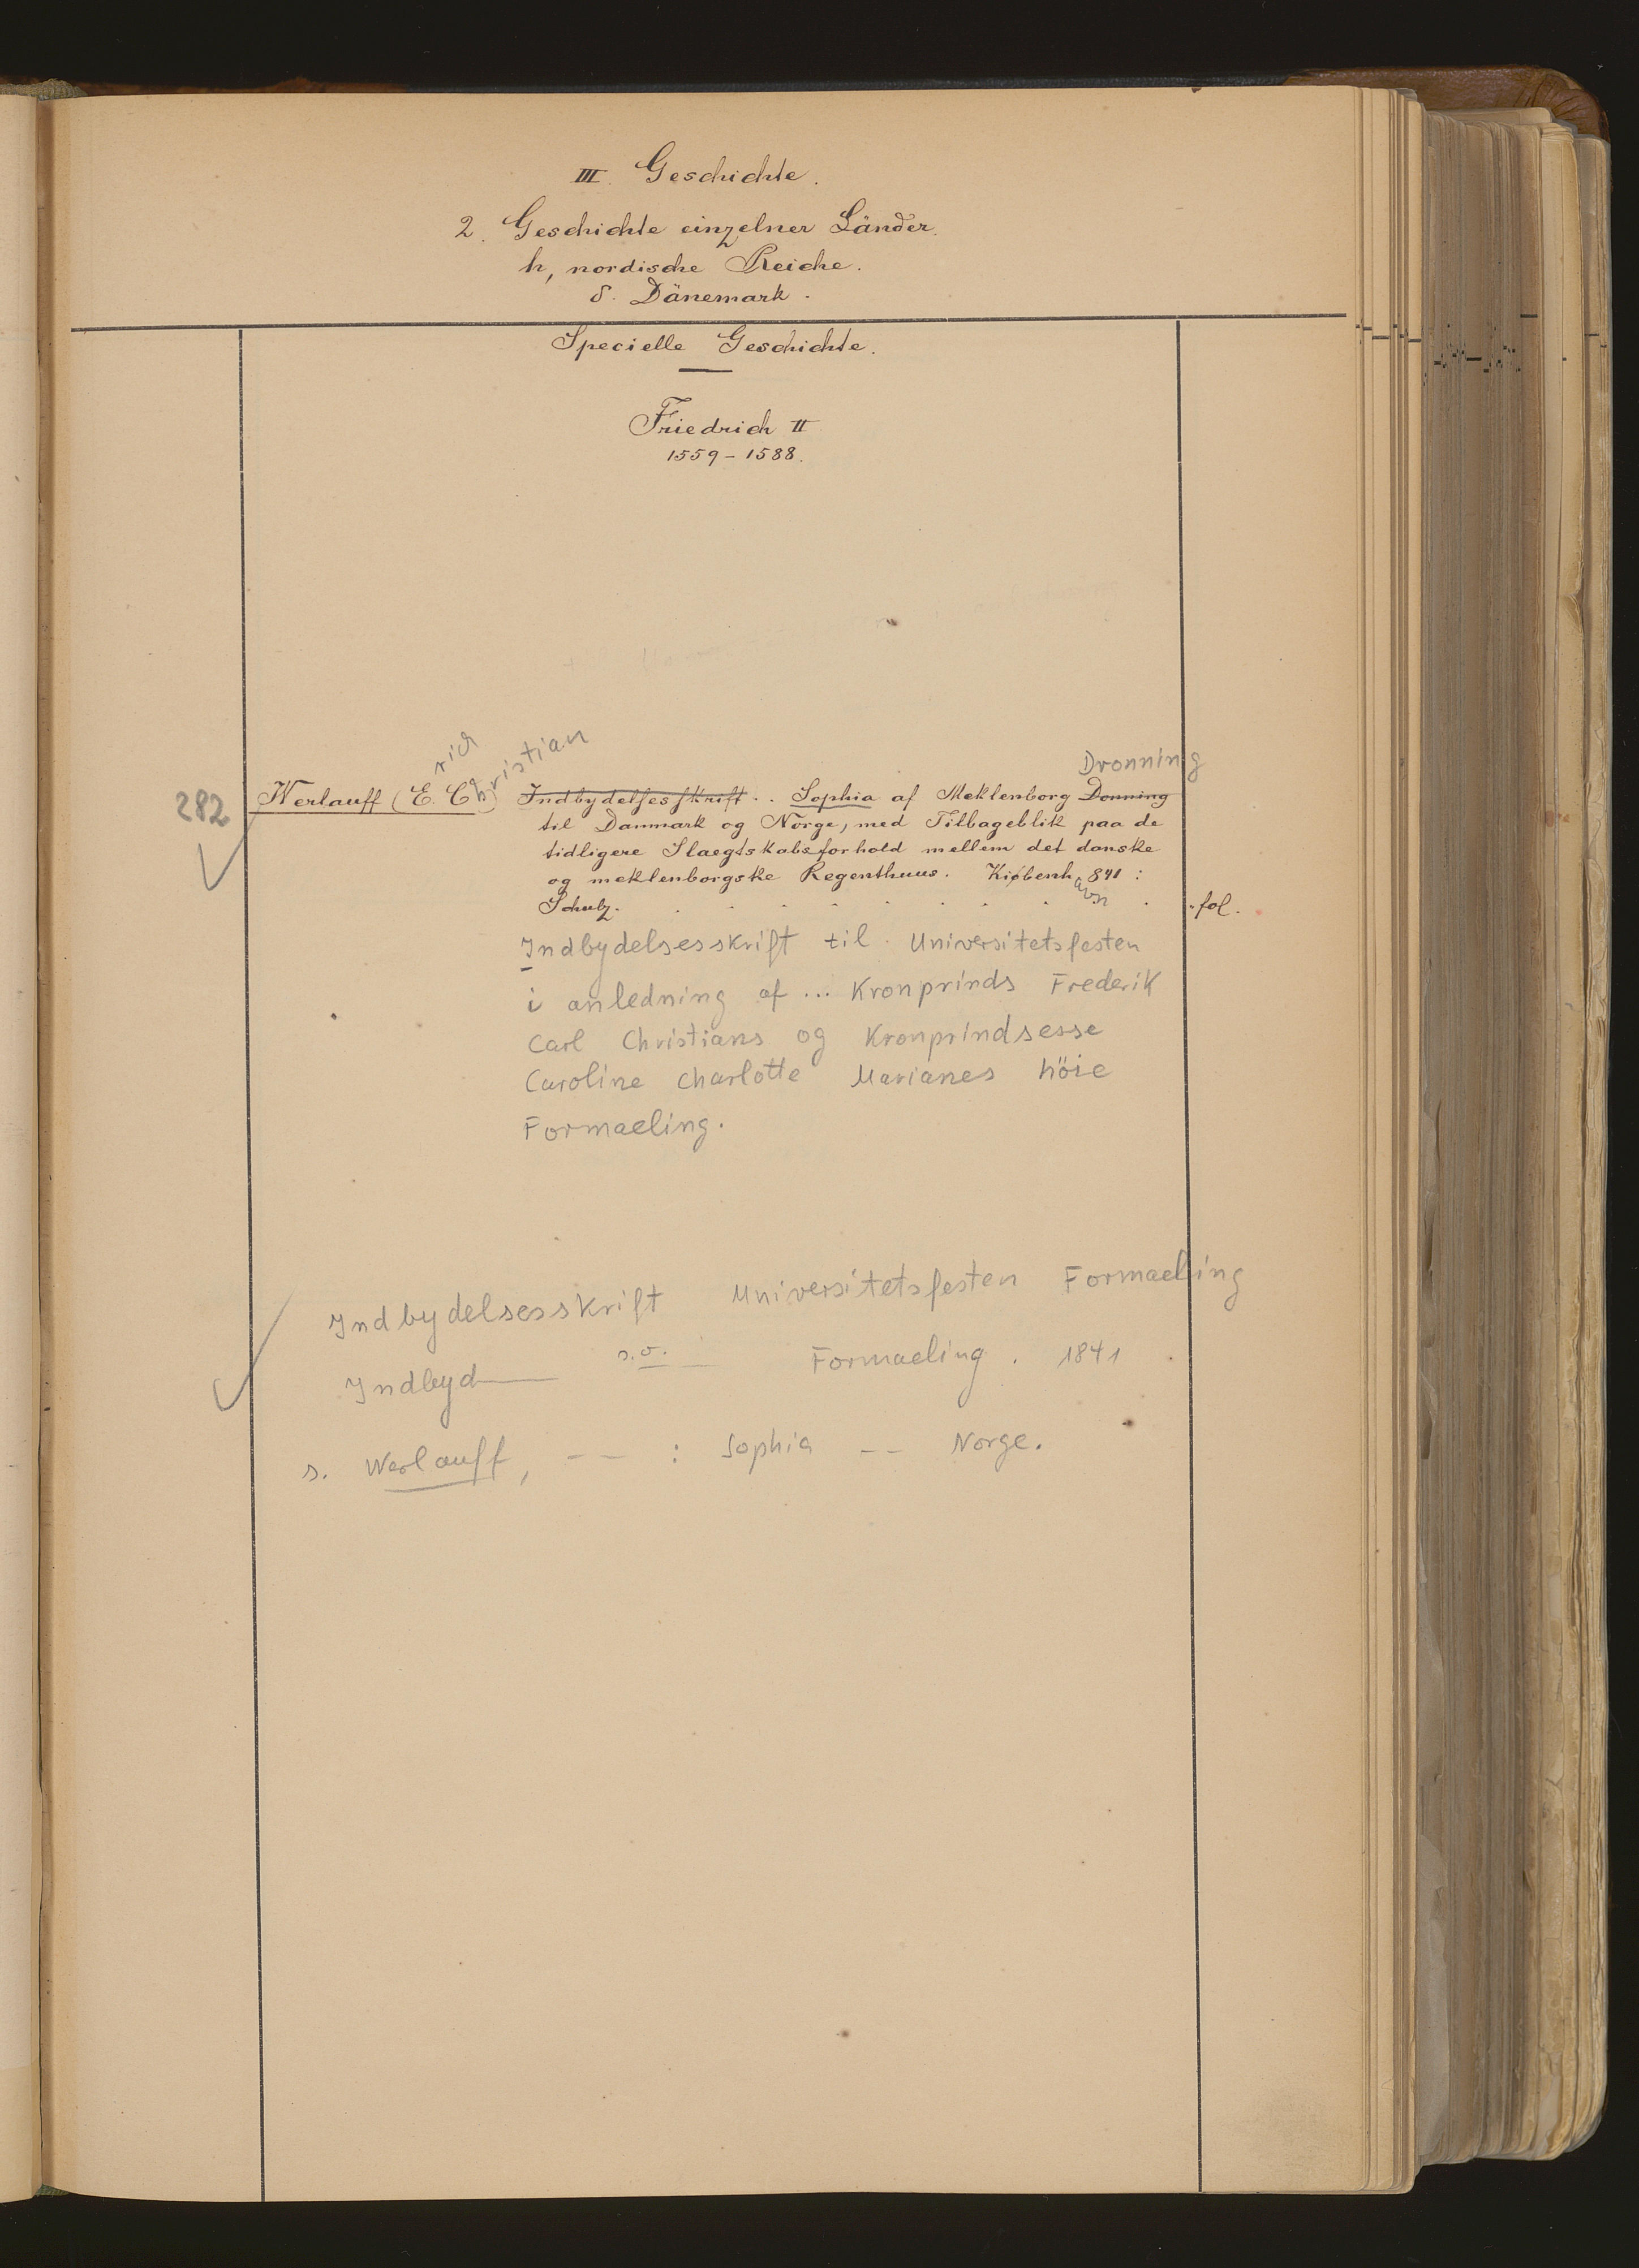 III. Geschichte.
2. Geschichte einzelner Länder.
h, nordische Reiche.
δ. Dänemark.
Specielle Geschichte.
Friedrich II
1559-1588.
rich
hristian
Dronning
282 Werlauff (E. C) Indbydelsesskrift . . Sophia af Meklenborg Donning
til Danmark og Norge, med Tilbageblik paa de
tidligere Slaegtskabsforhold mellem det danske
og meklenborgske Regenthuus. Kiøbenh 841 :
avn
Schulz. . . . . . . . . fol.
Indbydelsesskrift til Universitetsfesten
i anledning af ... Kronprinds Frederik
Carl Christians og Kronprindsesse
Caroline Charlotte Marianes höie
Formaeling.
Indbydelsesskrift Universitetsfesten Formaeling
Indbyd— s.o. — Formaeling. 1841
s. Werlauff, -- : Sophia -- Norge.